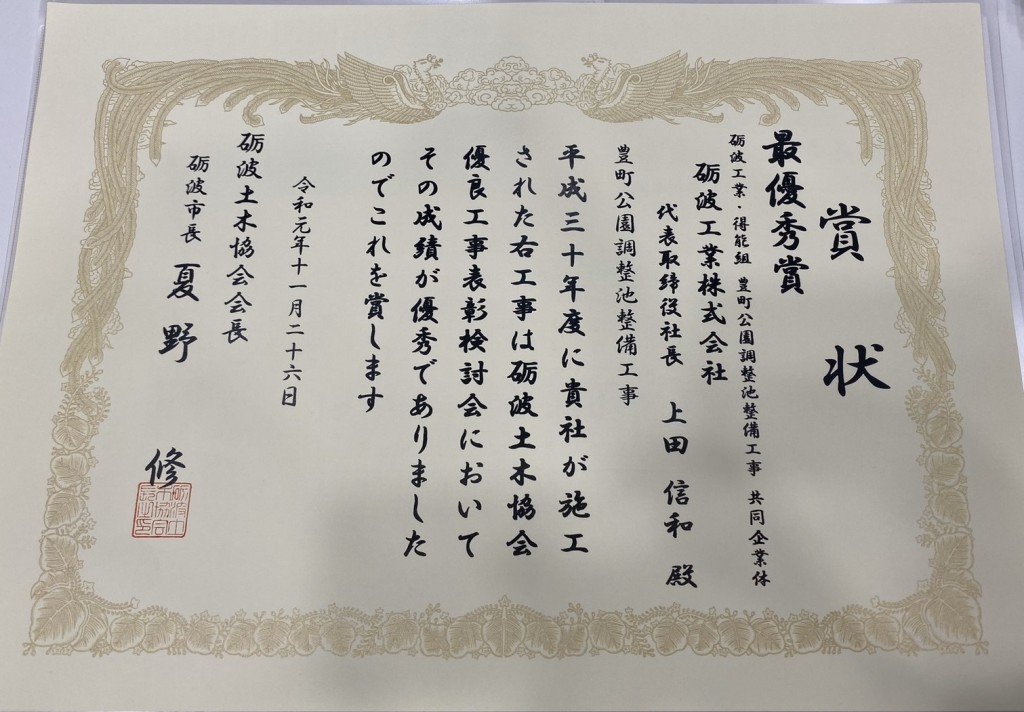 賞状
最優秀賞
砺波工業・得能組 豊町公園調整池整備工事 共同企業体
砺波工業株式会社
代表取締役社長 上田 信和 殿
豊町公園調整池整備工事
平成三十年度に貴社が施工
された右工事は砺波土木協会
優良工事表彰検討会において
その成績が優秀でありました
のでこれを賞します
令和元年十一月二十六日
砺波土木協会会長
砺波市長 夏野 修